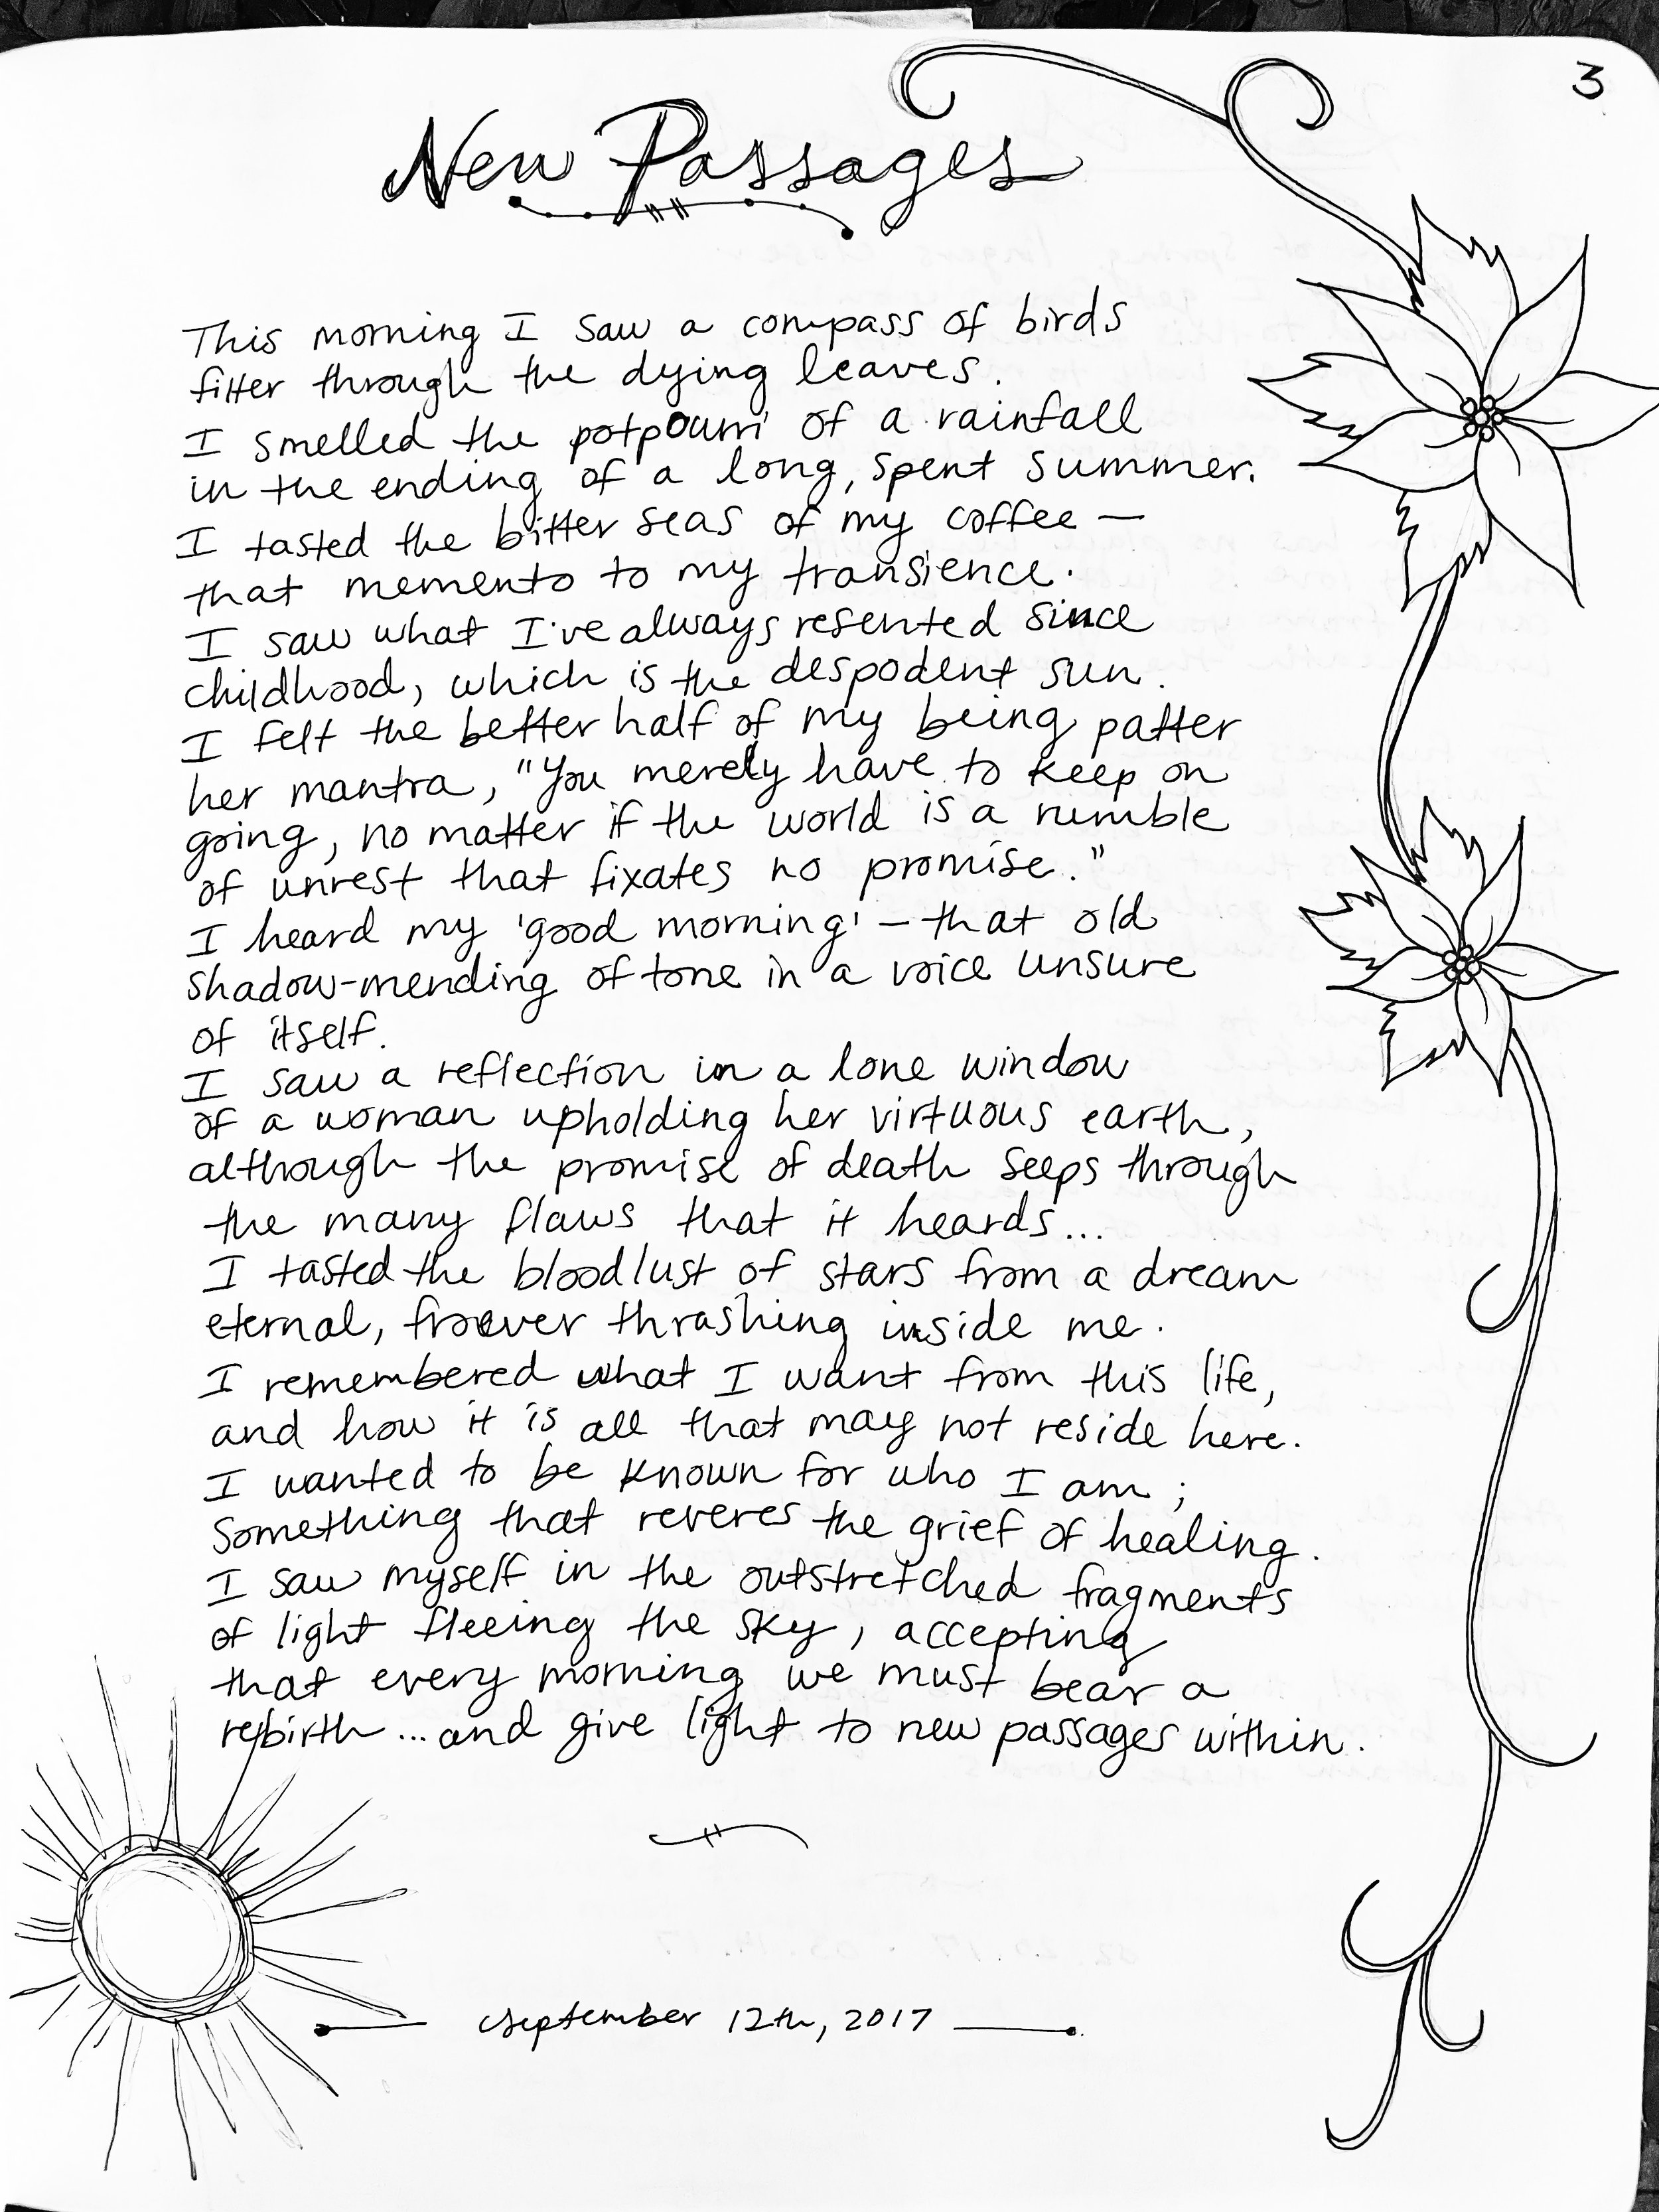 3
New Passages
This morning I saw a compass of birds
fitter through the dying leaves.
I smelled the potpourri of a rainfall
in the ending of a long, spent summer.
I tasted the bitter seas of my coffee —
that memento to my transience.
I saw what I've always resented since
childhood, which is the despodent sun.
I felt the better half of my being patter
her mantra, "You merely have to keep on
going, no matter if the world is a rumble
of unrest that fixates no promise."
I heard my 'good morning' — that old
shadow-mending of tone in a voice unsure
of itself.
I saw a reflection in a lone window
of a woman upholding her virtuous earth,
although the promise of death seeps through
the many flaws that it heards...
I tasted the bloodlust of stars from a dream
eternal, froever thrashing inside me.
I remembered what I want from this life,
and how it is all that may not reside here.
I wanted to be known for who I am;
Something that reveres the grief of healing.
I saw myself in the outstretched fragments
of light fleeing the sky, accepting
that every morning we must bear a
rebirth... and give light to new passages within.
September 12th, 2017